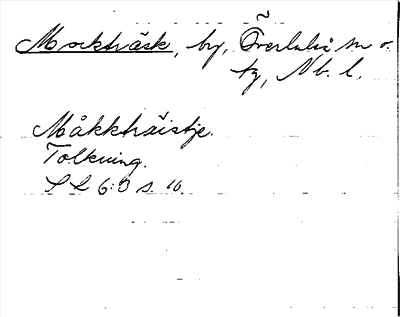 Morkträsk, by, Överluleå sn o.
tg, Nb. l.
Måkkträistje.
Tolkning.
SL 6:3 s. 10.